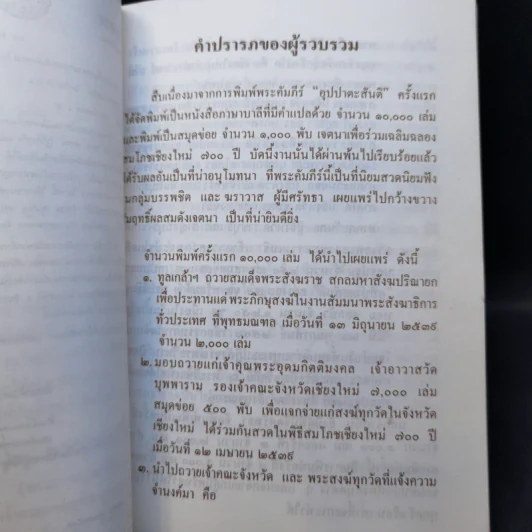 คำปรารภของผู้รวบรวม
สืบเนื่องมาจากการพิมพ์พระคัมภีร์ "อุปปาตะสันติ" ครั้งแรก
ได้จัดพิมพ์เป็นหนังสือภาษาบาลีที่มีคำแปลด้วย จำนวน ๑๐,๐๐๐ เล่ม
และพิมพ์เป็นสมุดข่อย จำนวน ๑,๐๐๐ พับ เจตนาเพื่อร่วมเฉลิมฉลอง
สมโภชเชียงใหม่ ๗๐๐ ปี บัดนี้งานนั้นได้ผ่านพ้นไปเรียบร้อยแล้ว
ได้รับผลอันเป็นที่น่าอนุโมทนา ที่พระคัมภีร์นี้เป็นที่นิยมสวดนิยมฟัง
ในกลุ่มบรรพชิต และ ฆราวาส ผู้มีศรัทธา เผยแพร่ไปกว้างขวาง
สัมฤทธิ์ผลสมดังเจตนา เป็นที่น่ายินดียิ่ง
จำนวนพิมพ์ครั้งแรก ๑๐,๐๐๐ เล่ม ได้นำไปเผยแพร่ ดังนี้
๑. ทูลเกล้าฯ ถวายสมเด็จพระสังฆราช สกลมหาสังฆปริณายก
เพื่อประทานแด่พระภิกษุสงฆ์ในงานสัมมนาพระสังฆาธิการ
ทั่วประเทศ ที่พุทธมณฑล เมื่อวันที่ ๑๓ มิถุนายน ๒๕๓๙
จำนวน ๒,๐๐๐ เล่ม
๒. มอบถวายแก่เจ้าคุณพระอุดมกิตติมงคล เจ้าอาวาสวัด
บุพพาราม รองเจ้าคณะจังหวัดเชียงใหม่ ๗,๐๐๐ เล่ม
สมุดข่อย ๕๐๐ พับ เพื่อแจกจ่ายแก่สงฆ์ทุกวัดในจังหวัด
เชียงใหม่ ได้ร่วมกันสวดในพิธีสมโภชเชียงใหม่ ๗๐๐ ปี
เมื่อวันที่ ๑๒ เมษายน ๒๕๓๙
๓. นำไปถวายเจ้าคณะจังหวัด และ พระสงฆ์ทุกวัดที่แจ้งความ
จำนงค์มา คือ